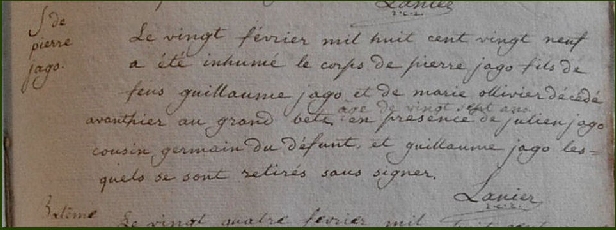 Lanier
S. de
pierre
jago.
Le vingt février mil huit cent vingt neuf
a été inhumé le corps de pierre jago fils de
feus guillaume jago et de marie ollivier décédé
age de vingt sept ans
avanthier au grand betz en présence de julien jago
cousin germain du défunt, et guillaume jago les-
quels se sont retirés sans signer.
Lanier
Le vingt quatre février mil huit cent